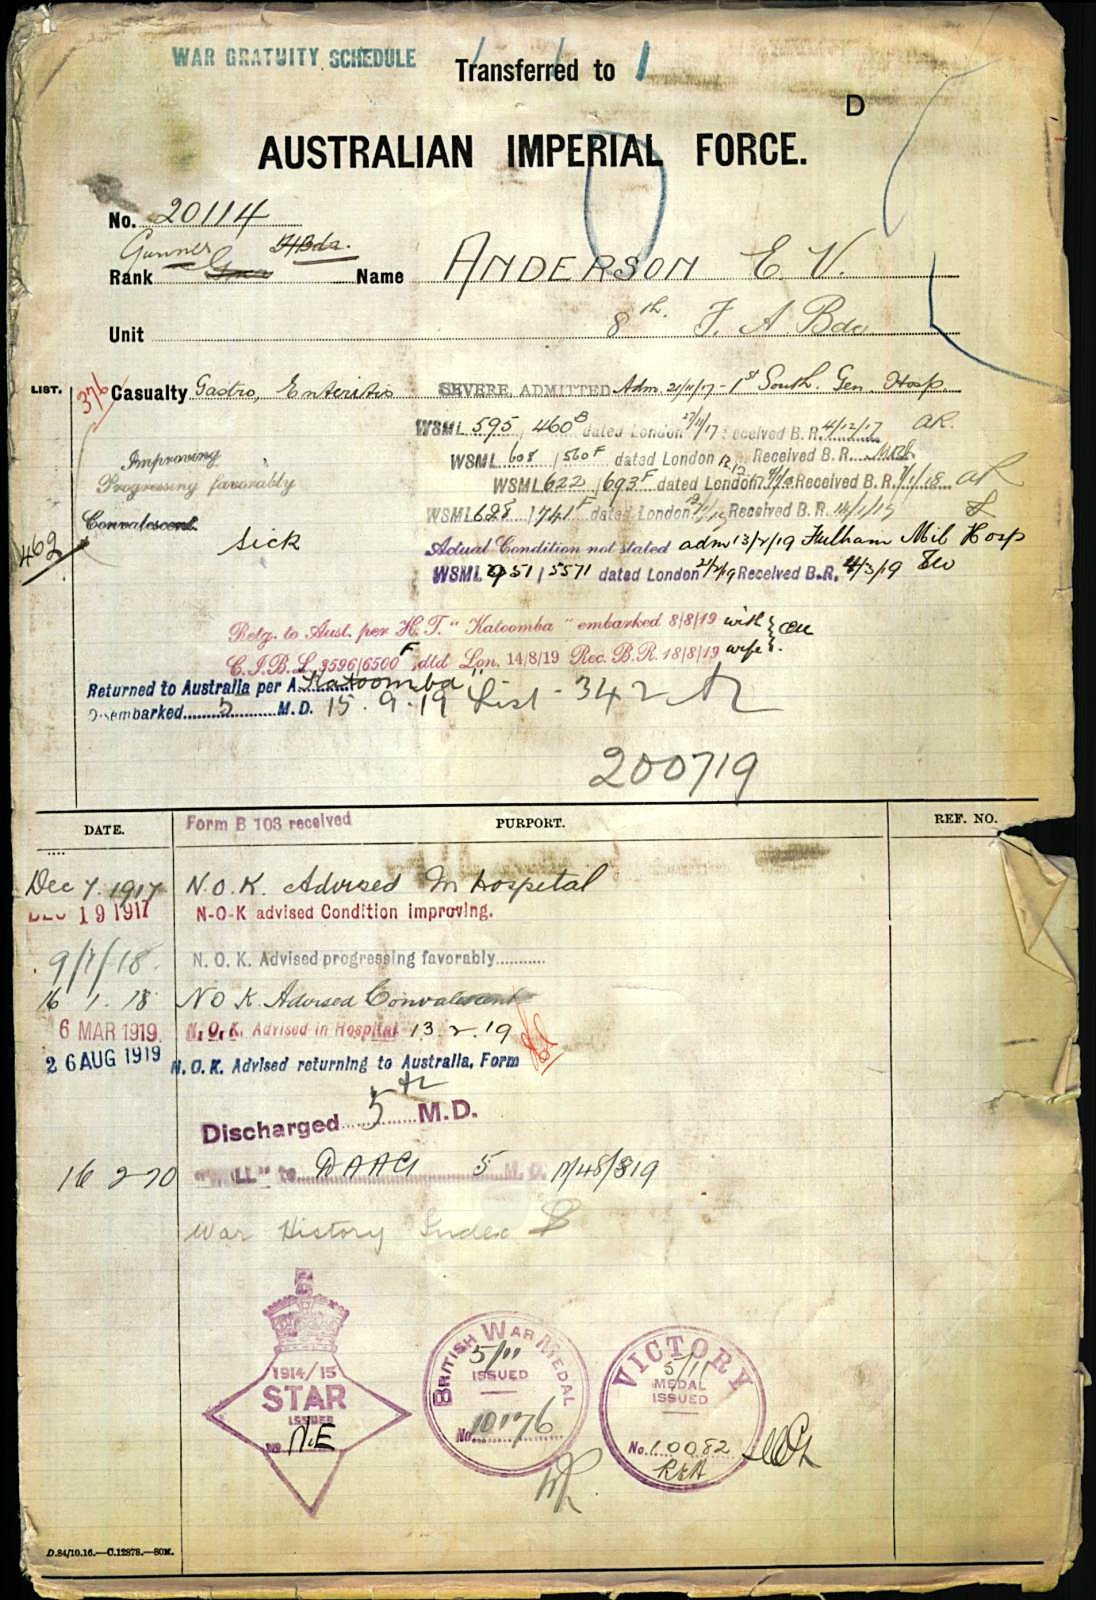 WAR GRATUITY SCHEDULE
Transferred to 1
D
AUSTRALIAN IMPERIAL FORCE.
No. 20114
Gunner
Rank Name ANDERSON E. V.
Unit 8th. F. A. Bde
LIST.
376 Casualty Gastro, Enteritis SEVERE, ADMITTED Adm. 21/11/17 - 1st South. Gen. Hosp.
WSML 595 460B dated London 27/11/17 received B. R. 4/12/17 AR.
WSML 608 / 560F dated London Received B. R.
Improving
Progressing favorably WSML 622 / 693F dated London Received B. R. 7/1/18 AR
Convalescent WSML 628 / 741F dated London Received B. R.
462 Sick Actual Condition not stated adm 13/2/19 Fulham Mil Hosp
WSML 951 / 5571 dated London Received B.R. 4/3/19
Retg. to Aust. per H.T. "Katoomba" embarked 8/8/19 with
C.I.B.L. 3596/6500F dtd Lon. 14/8/19 Rec. B.R. 18/8/19 wife.
Returned to Australia per A. Katoomba
Disembarked 5 M.D. 15.9.19 List - 342
200719
DATE. Form B 103 received PURPORT. REF. NO.
Dec 7. 1917 N.O.K. Advised In hospital
DEC 19 1917 N-O-K advised Condition improving.
9/1/18. N. O. K. Advised progressing favorably
16 1. 18 N O K Advised Convalescent
6 MAR 1919. N. O. K. Advised in Hospital 13.2.19
26 AUG 1919 N. O. K. Advised returning to Australia, Form
Discharged 5th M.D.
16 2 20 "WILL" to DAAG 5 M. D.
War History Index
1914/15
STAR
ISSUED
No N.E
BRITISH WAR MEDAL
5/11
ISSUED
No. 10176
VICTORY
5/11
MEDAL
ISSUED
No. 10082
D.84/10.16.—C.12878.—80M.